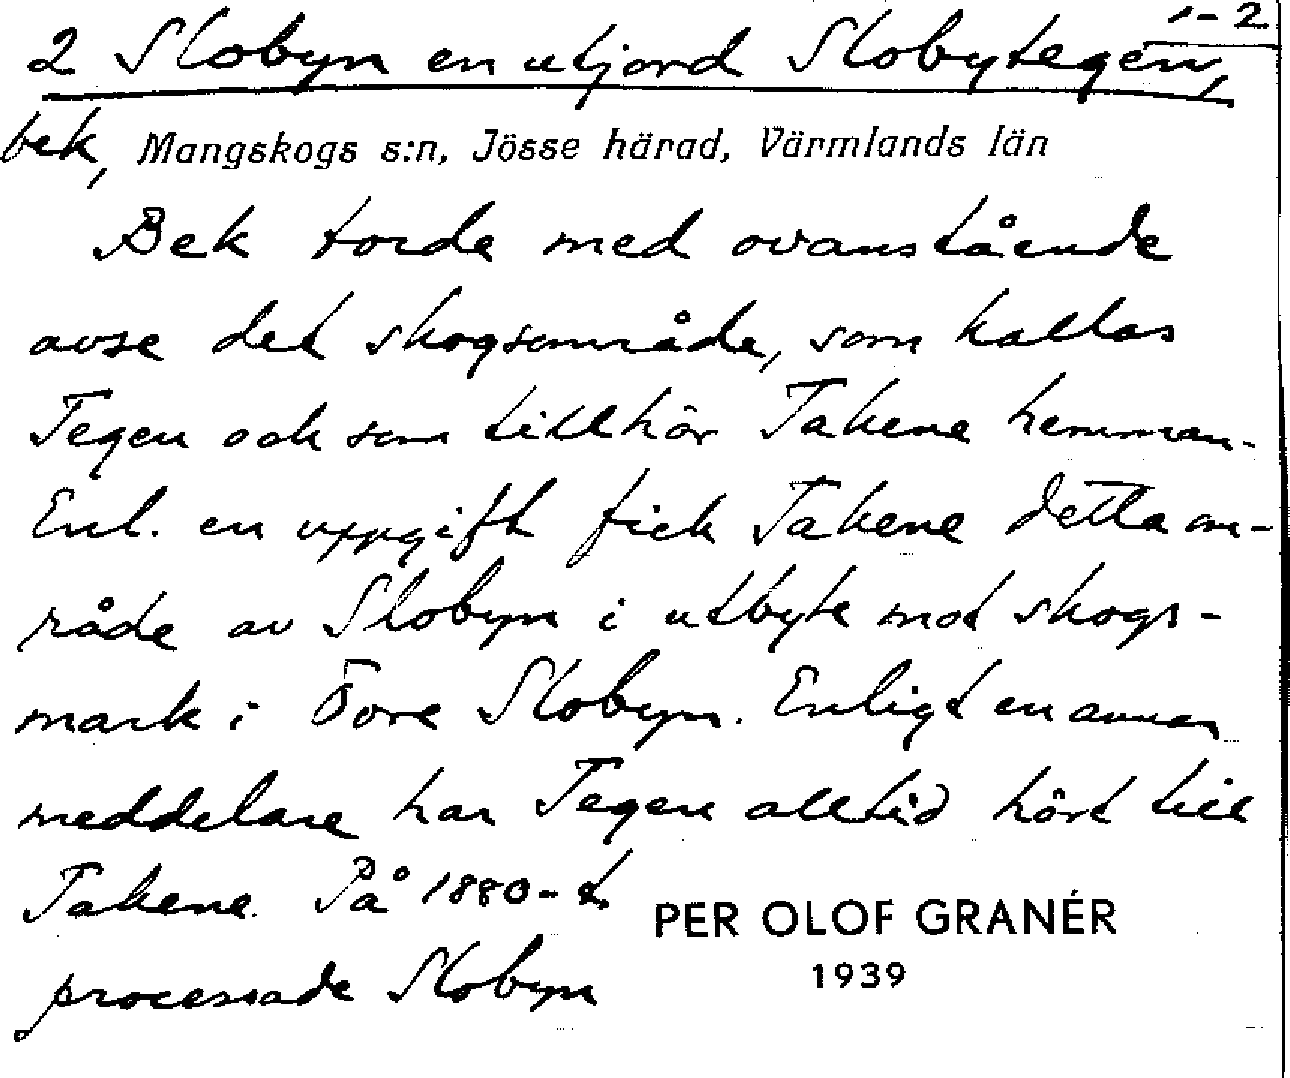 1-2
2 Slobyn en utjord Slobytegen,
bek, Mangskogs s:n, Jösse härad, Värmlands län
Bek torde med ovanstående
avse det skogsområde, som kallas
Tegen och som tillhör Takene hemman.
Enl. en uppgift fick Takene detta om-
råde av Slobyn i utbyte mot skogs-
mark i Tore Slobyn. Enligt en annan
meddelare har Tegen alltid hört till
Takene. På 1880-t.
processade Slobyn
PER OLOF GRANÉR
1939